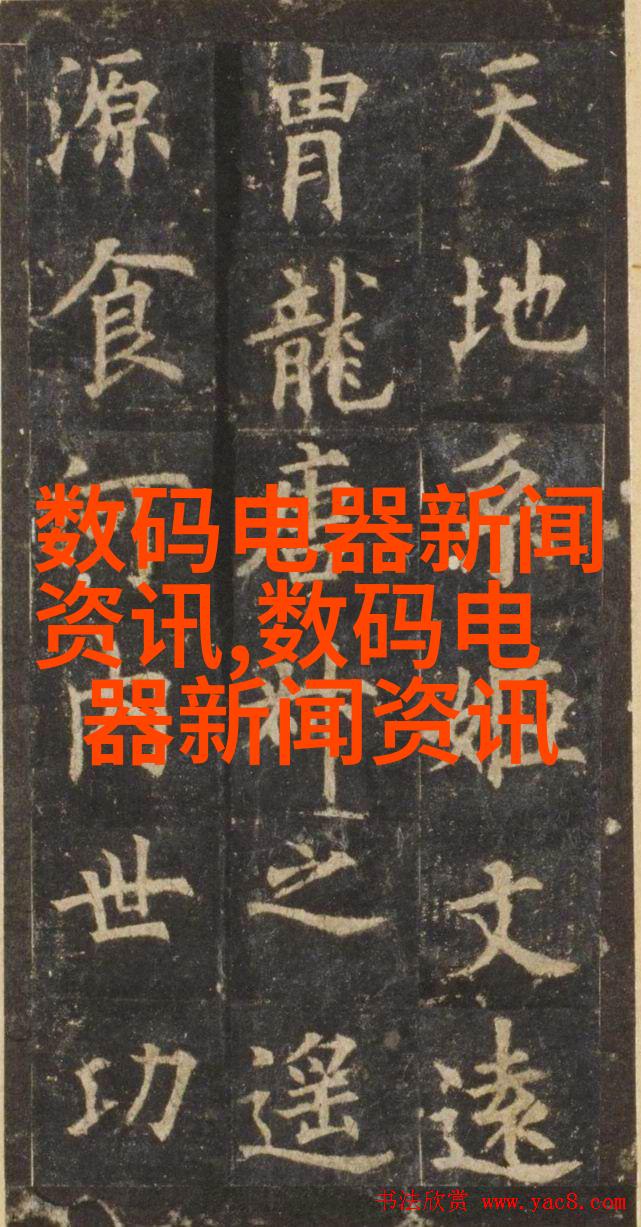 天地姬文遠
胄龍唐之遥
源食河内世功
数码电器新闻
资讯,数码电
器新闻资讯
书法欣赏 www.yac8.com